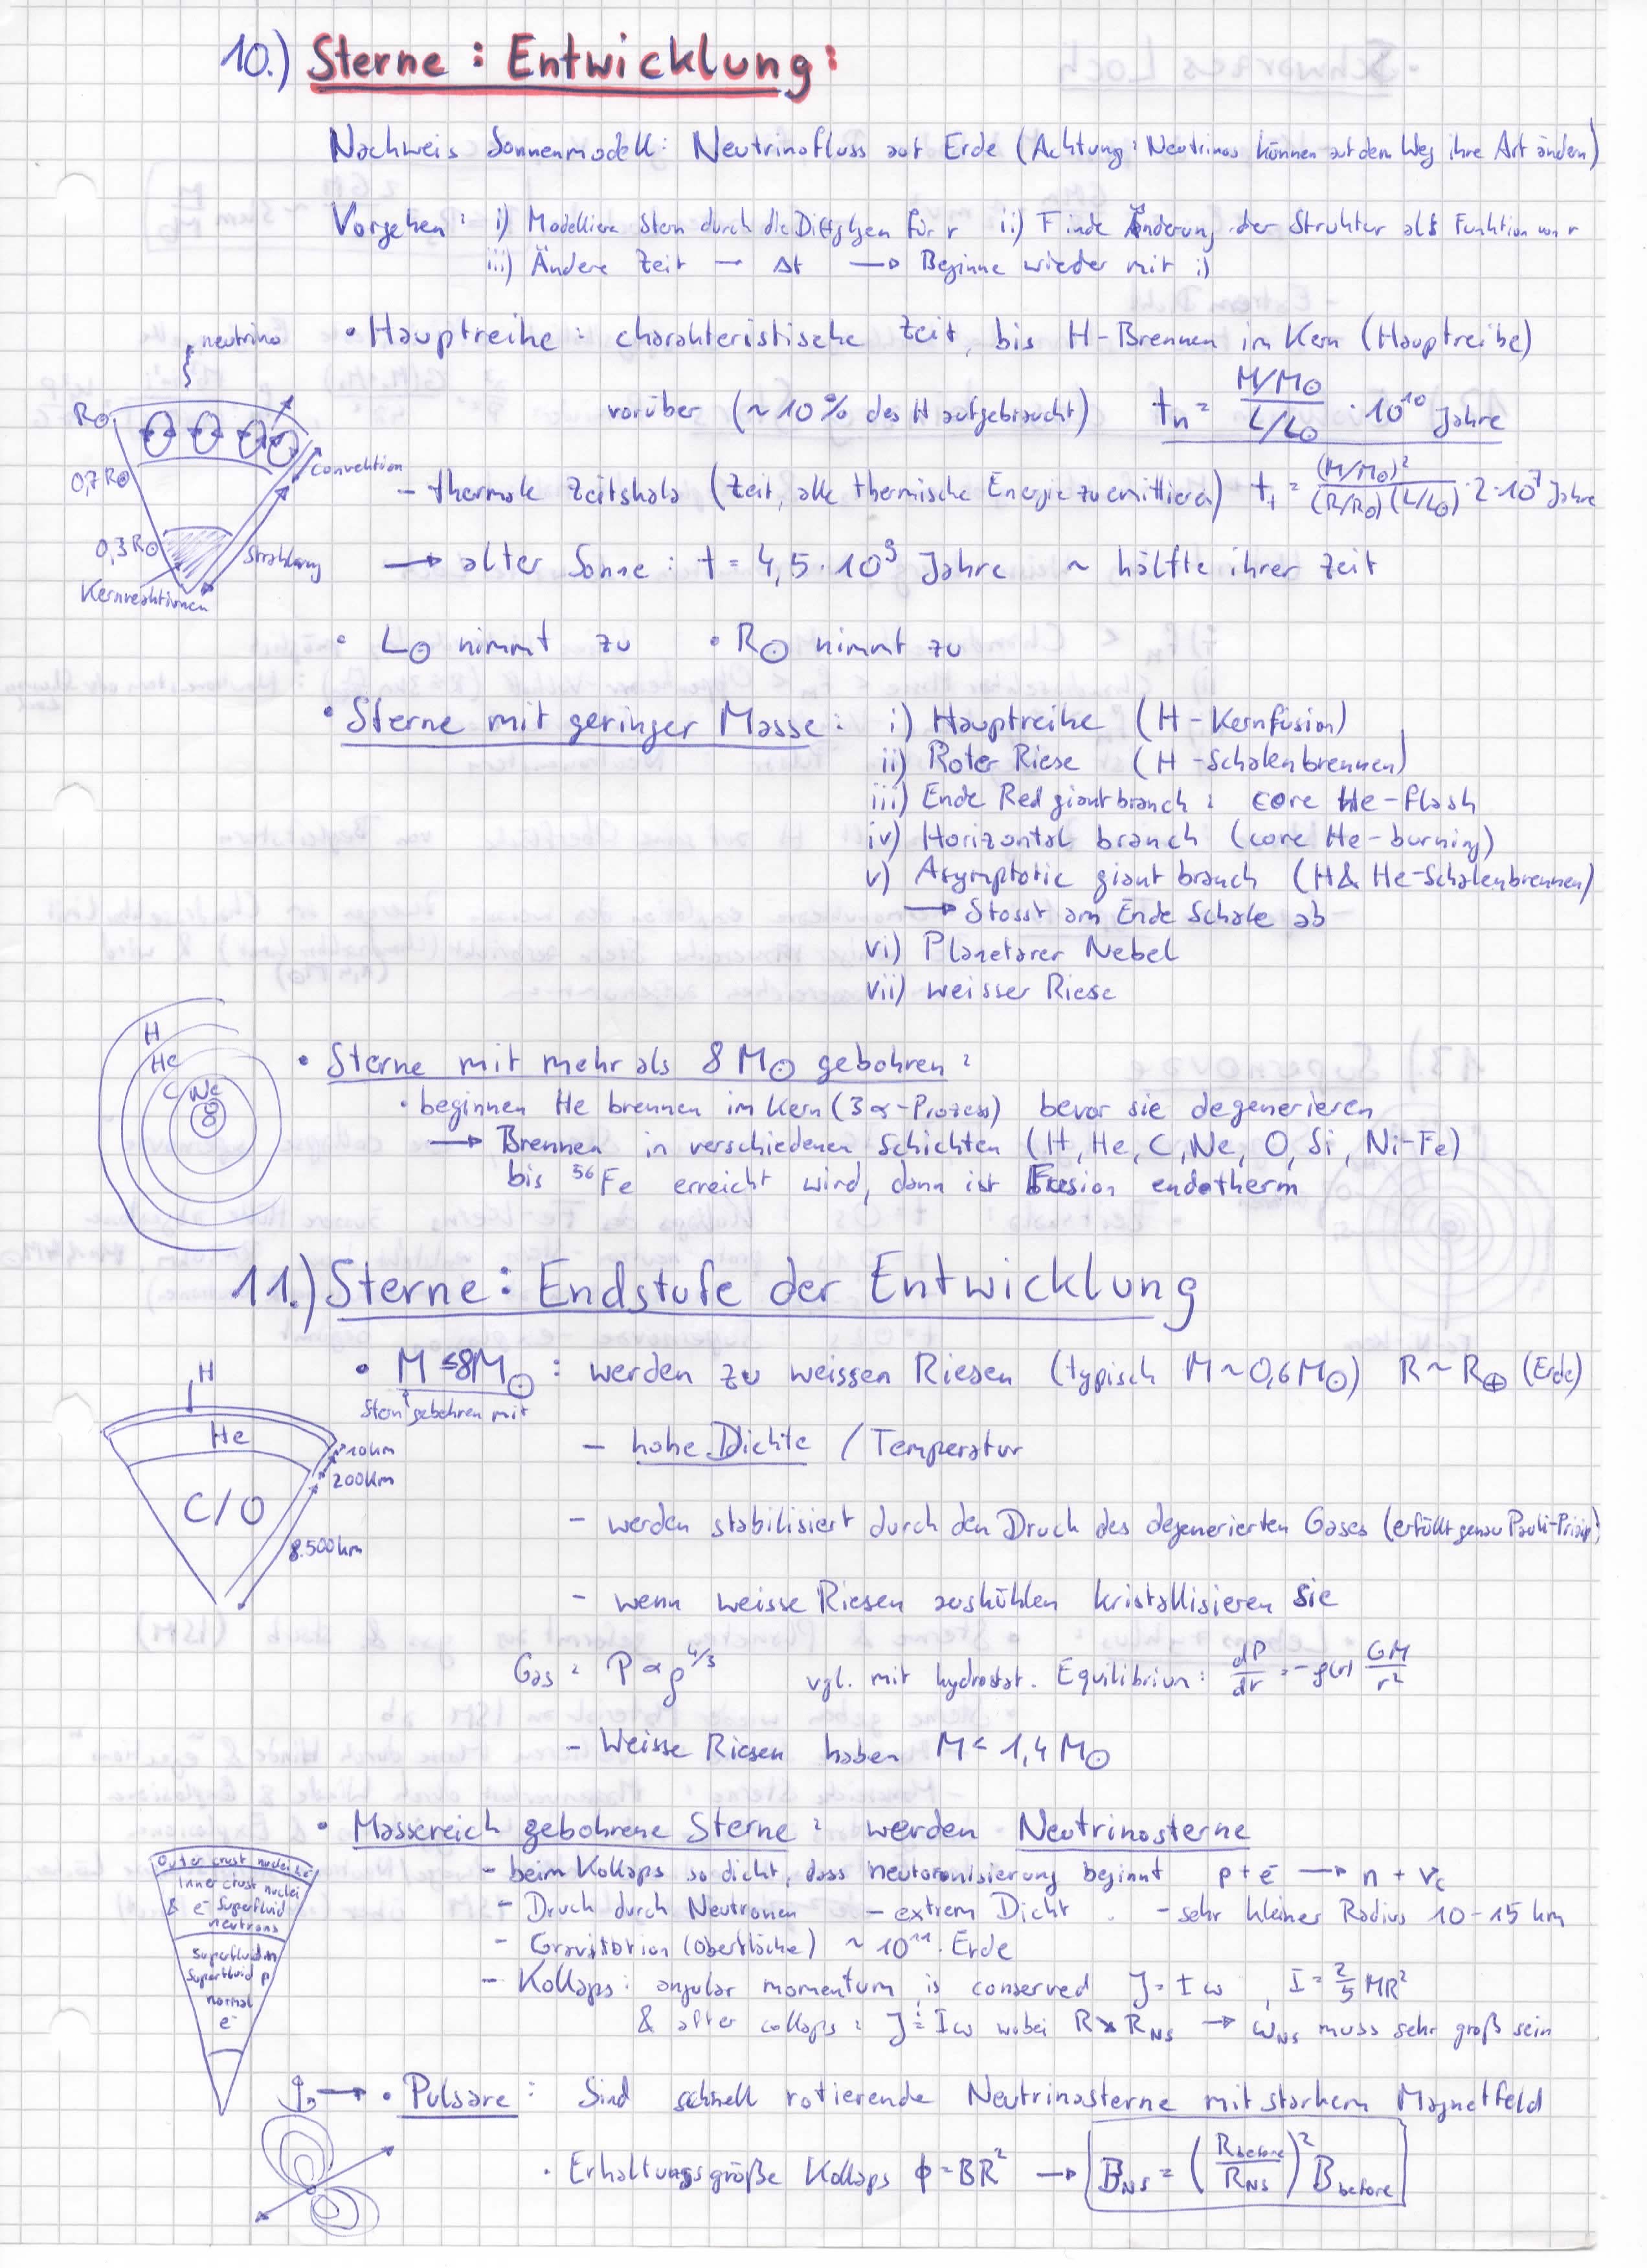 10.) Sterne : Entwicklung:
Nachweis Sonnenmodell: Neutrinofluss auf Erde (Achtung: Neutrinos können auf dem Weg ihre Art ändern)
Vorgehen: i) Modelliere Stern durch die Diffglgen für r ii) Finde Änderung der Struktur als Funktion von r
iii) Ändere Zeit → Δt → Beginne wieder mit i)
neutrino
R⊙
0,7 R⊙
0,3 R⊙
Convektion
Strahlung
Kernreaktionen
• Hauptreihe : charakteristische Zeit, bis H-Brennen im Kern (Hauptreihe)
vorüber (~10% des H aufgebraucht) tn = (M/M⊙)/(L/L⊙) · 10^10 Jahre
- thermale Zeitskala (Zeit, alle thermische Energie zu emittieren) t+ = (M/M⊙)²/((R/R⊙)(L/L⊙)) · 2·10^7 Jahre
→ alter Sonne : t = 4,5 · 10^9 Jahre ~ hälfte ihrer Zeit
• L⊙ nimmt zu • R⊙ nimmt zu
• Sterne mit geringer Masse: i) Hauptreihe (H-Kernfusion)
ii) Roter Riese (H-Schalenbrennen)
iii) Ende Red giant branch : core He-flash
iv) Horizontal branch (core He-burning)
v) Asymptotic giant branch (H & He-Schalenbrennen)
→ Stosst am Ende Schale ab
vi) Planetarer Nebel
vii) weisser Riese
H
He
C
Ne
• Sterne mit mehr als 8 M⊙ gebohren :
• beginnen He brennen im Kern (3α-Prozess) bevor sie degenerieren
→ Brennen in verschiedenen Schichten (H, He, C, Ne, O, Si, Ni-Fe)
bis ⁵⁶Fe erreicht wird, dann ist Fusion endotherm
11.) Sterne : Endstufe der Entwicklung
• M ≤ 8M⊙ : werden zu weissen Riesen (typisch M ~ 0,6 M⊙) R ~ R⊕ (Erde)
Stern gebohren mit
H
He
C/O
10km
200km
8.500km
- hohe Dichte / Temperatur
- werden stabilisiert durch den Druck des degenerierten Gases (erfüllt genau Pauli-Prinzip)
- wenn weisse Riesen auskühlen kristallisieren sie
Gas : P ∝ ρ^4/3 vgl. mit hydrostat. Equilibrium : dP/dr = -ρ(r) GM/r²
- Weisse Riesen haben M < 1,4 M⊙
• Massereich gebohrene Sterne : werden Neutrinosterne
- beim Kollaps so dicht, dass neutoronisierung beginnt p + e⁻ → n + νe
- Druck durch Neutronen - extrem Dicht - sehr kleiner Radius 10-15 km
- Gravitation (Oberfläche) ~ 10^11 · Erde
- Kollaps : angular momentum is conserved J = I ω , I = 2/5 MR²
& after collaps : J = I ω wobei R ↘ R_NS → ω_NS muss sehr groß sein
Outer crust nuclei
Inner crust nuclei
& e⁻ Superfluid
neutrons
superfluid n
Superfluid p
normal
e⁻
→ • Pulsare : Sind schnell rotierende Neutrinosterne mit starkem Magnetfeld
• Erhaltungsgröße Kollaps ϕ = BR² → B_NS = (R_before/R_NS)² B_before